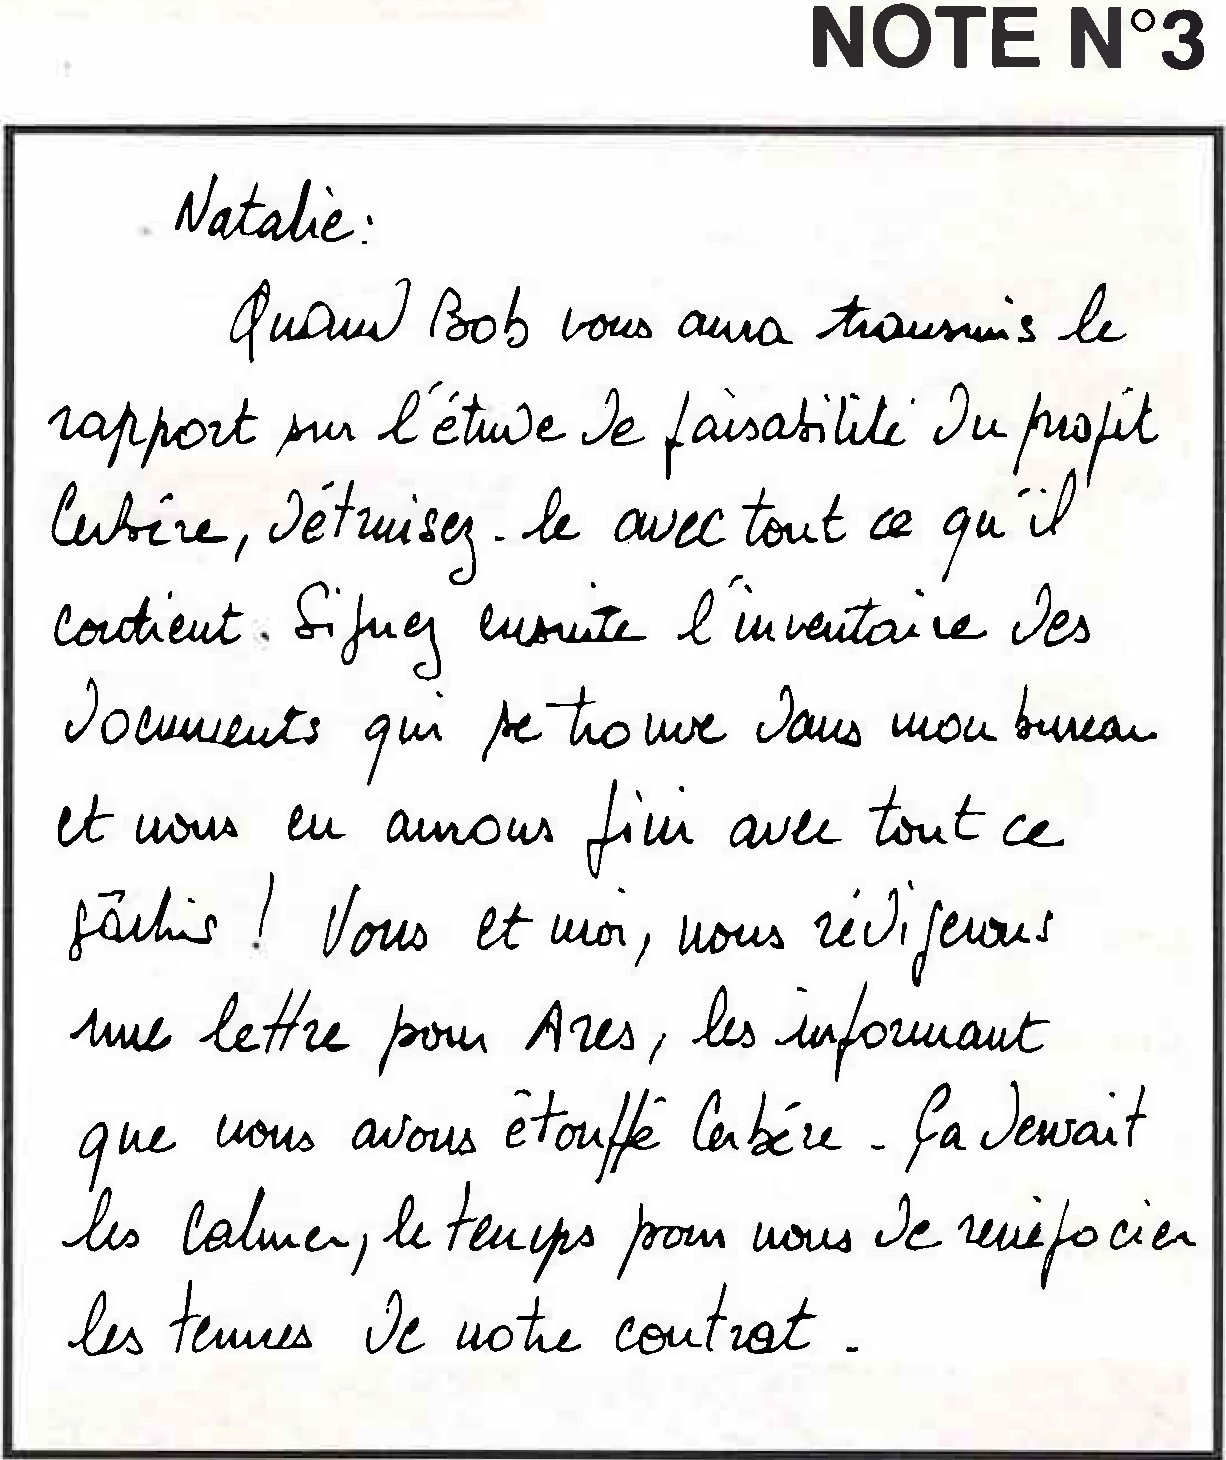 NOTE N°3
Natalie:
Quand Bob vous aura transmis le
rapport sur l'étude de faisabilité du profit
Cerbère, détruisez-le avec tout ce qu'il
contient. Signez ensuite l'inventaire des
documents qui se trouve dans mon bureau
et nous en aurons fini avec tout ce
gâchis ! Vous et moi, nous rédigerons
une lettre pour Ares, les informant
que nous avons étouffé Cerbère. Ça devrait
les calmer, le temps pour nous de renégocier
les termes de notre contrat.